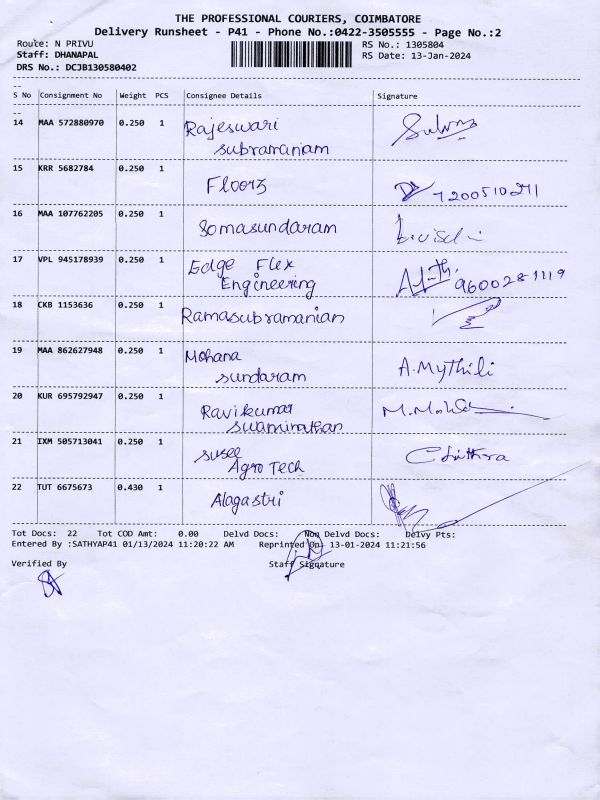 THE PROFESSIONAL COURIERS, COIMBATORE
Delivery Runsheet - P41 - Phone No.:0422-3505555 - Page No.:2
Route: N PRIVU
RS No.: 1305804
Staff: DHANAPAL
RS Date: 13-Jan-2024
DRS No.: DCJB130580402
S No Consignment No Weight PCS Consignee Details Signature
14 MAA 572880970 0.250 1 Rajeswari
subramaniam
15 KRR 5682784 0.250 1 Floorz 7200510271
16 MAA 107762205 0.250 1 Somasundaram
17 VPL 945178939 0.250 1 Edge Flex
Engineering 9600281119
18 CKB 1153636 0.250 1 Ramasubramanian
19 MAA 862627948 0.250 1 Mohana
sundaram A.Mythili
20 KUR 695792947 0.250 1 Ravikumar
swaminathan
21 IXM 505713041 0.250 1 susee
Agro Tech Chithra
22 TUT 6675673 0.430 1 Alagastri
Tot Docs: 22 Tot COD Amt: 0.00 Delvd Docs: Non Delvd Docs: Delvy Pts:
Entered By :SATHYAP41 01/13/2024 11:20:22 AM Reprinted On 13-01-2024 11:21:56
Verified By Staff Signature